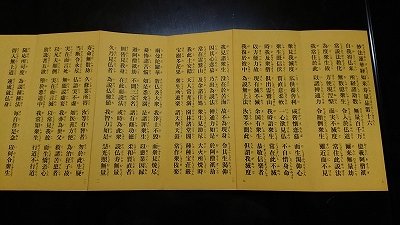 妙法蓮華経如来寿量品第十六
自我得仏来 所経諸劫数 無量百千万 億載阿僧祇
常説法教化 無数億衆生 令入於仏道 爾来無量劫
為度衆生故 方便現涅槃 而実不滅度 常住此説法
我常住於此 以諸神通力 令顛倒衆生 雖近而不見
衆見我滅度 広供養舎利 咸皆懐恋慕 而生渇仰心
衆生既信伏 質直意柔軟 一心欲見仏 不自惜身命
時我及衆僧 倶出霊鷲山 我時語衆生 常在此不滅
以方便力故 現有滅不滅 余国有衆生 恭敬信楽者
我復於彼中 為説無上法 汝等不聞此 但謂我滅度
我見諸衆生 没在於苦海 故不為現身 令其生渇仰
因其心恋慕 乃出為説法 神通力如是 於阿僧祇劫
常在霊鷲山 及余諸住処 衆生見劫尽 大火所焼時
我此土安穏 天人常充満 園林諸堂閣 種種宝荘厳
宝樹多花果 衆生所遊楽 諸天撃天鼓 常作衆伎楽
雨曼陀羅華 散仏及大衆 我浄土不毀 而衆見焼尽
憂怖諸苦悩 如是悉充満 是諸罪衆生 以悪業因縁
過阿僧祇劫 不聞三宝名 諸有修功徳 柔和質直者
則皆見我身 在此而説法 或時為此衆 説仏寿無量
久乃見仏者 為説仏難値 我智力如是 慧光照無量
寿命無数劫 久修業所得 汝等有智者 勿於此生疑
当断令永尽 仏語実不虚 如医善方便 為治狂子故
実在而言死 無能説虚妄 我亦為世父 救諸苦患者
為凡夫顛倒 実在而言滅 以常見我故 而生憍恣心
放逸著五欲 堕於悪道中 我常知衆生 行道不行道
随所応可度 為説種種法 毎自作是念 以何令衆生
得入無上道 速成就仏身